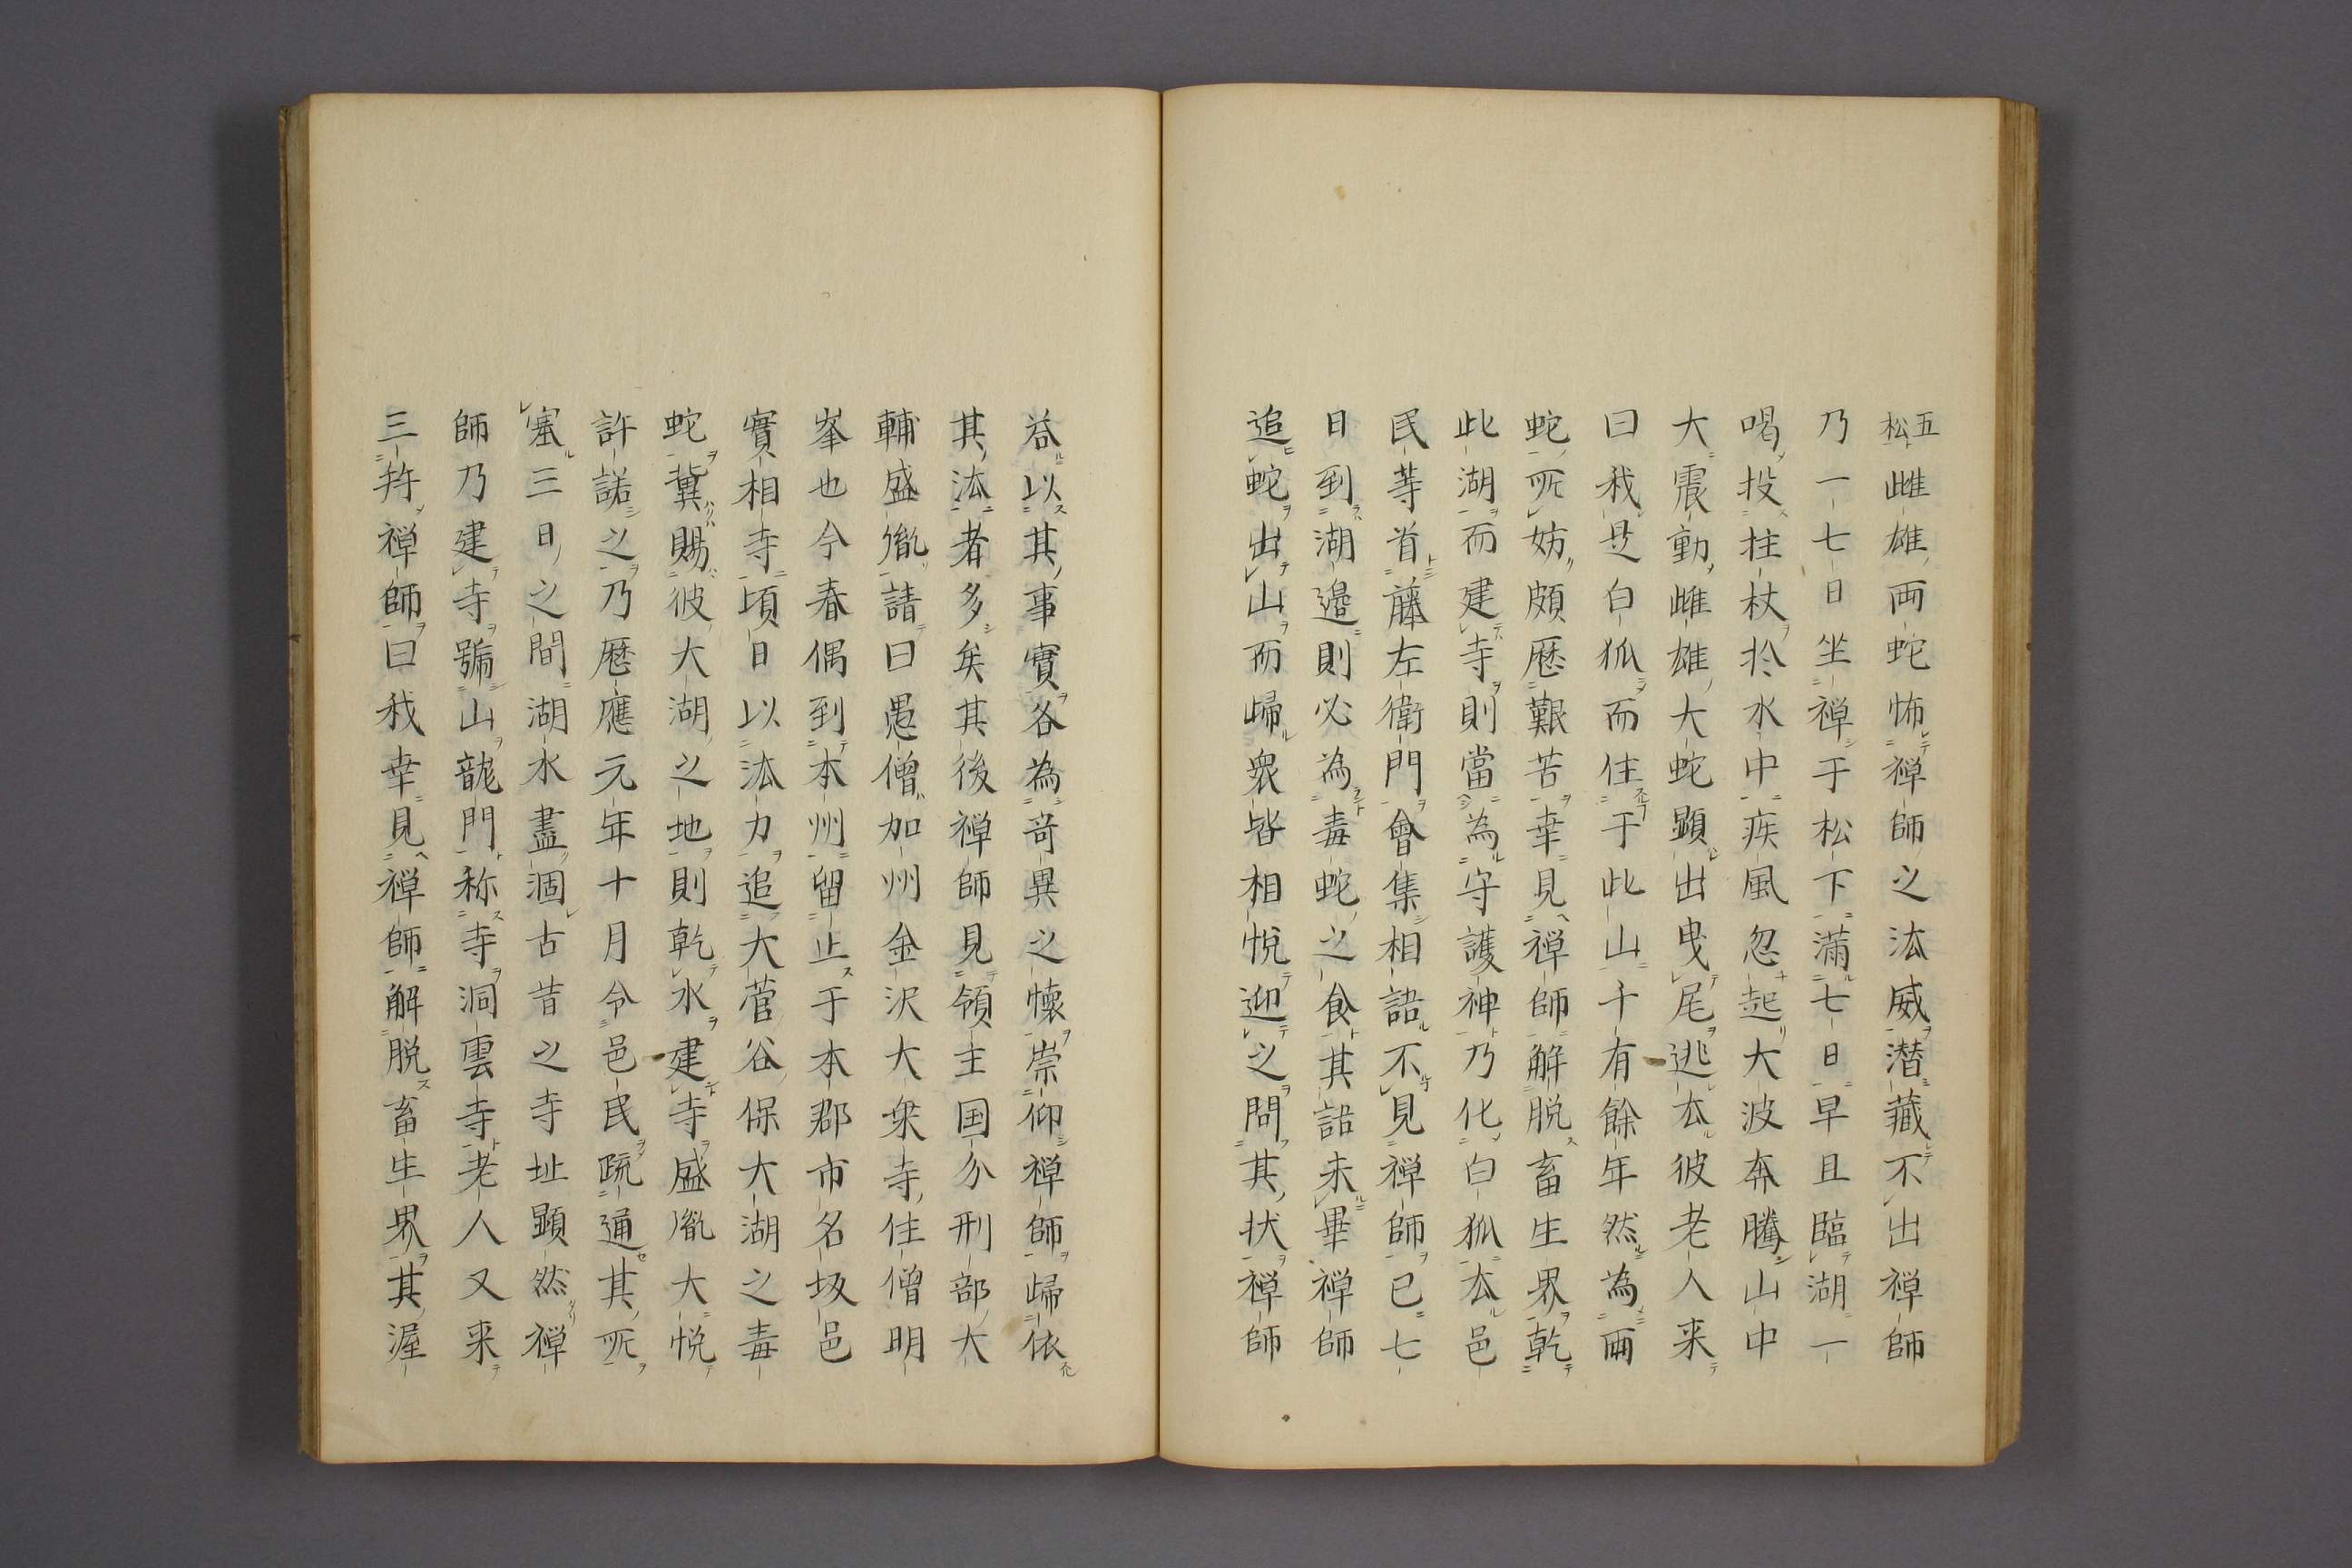 五松雌雄両蛇怖禅師之法威潜藏不出禅師
乃一七日坐禅于松下満七日早旦臨湖一
喝投拄杖於水中疾風忽起大波奔騰山中
大震動雌雄大蛇顕出曳尾逃去彼老人来
曰我是白狐而住于此山千有餘年然為両
蛇所妨頗歴艱苦幸見禅師解脱畜生界乾
此湖而建寺則當為守護神乃化白狐去邑
民等首藤左衛門會集相語不見禅師已七
日到湖邉則必為毒蛇之食其語未畢禅師
追蛇出山而帰衆皆相悦迎之問其状禅師
答以其事實各為奇異之懐崇仰禅師帰依
其法者多矣其後禅師見領主国分刑部大
輔盛胤請曰愚僧加州金沢大乗寺住僧明
峯也今春偶到本州留止于本郡市名坂邑
實相寺頃日以法力追大菅谷保大湖之毒
蛇冀賜彼大湖之地則乾水建寺盛胤大悦
許諾之乃歴應元年十月令邑民疏通其所
塞三日之間湖水盡涸古昔之寺址顕然禅
師乃建寺號山龍門称寺洞雲寺老人又来
三拝禅師曰我幸見禅師解脱畜生界其渥